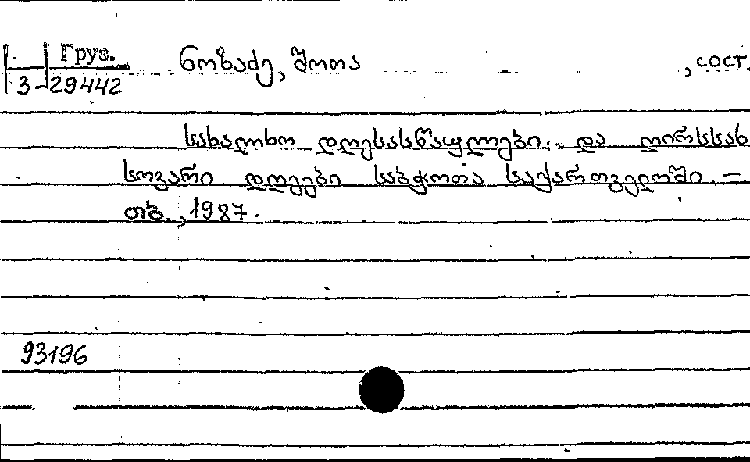 Груз.
3-29442
ნოზაძე, შოთა , сост.
სახალხო დღესასწაულები და ღირსსახ
სოვარი დღეები საბჭოთა საქართველოში. —
თბ., 1987.
93196